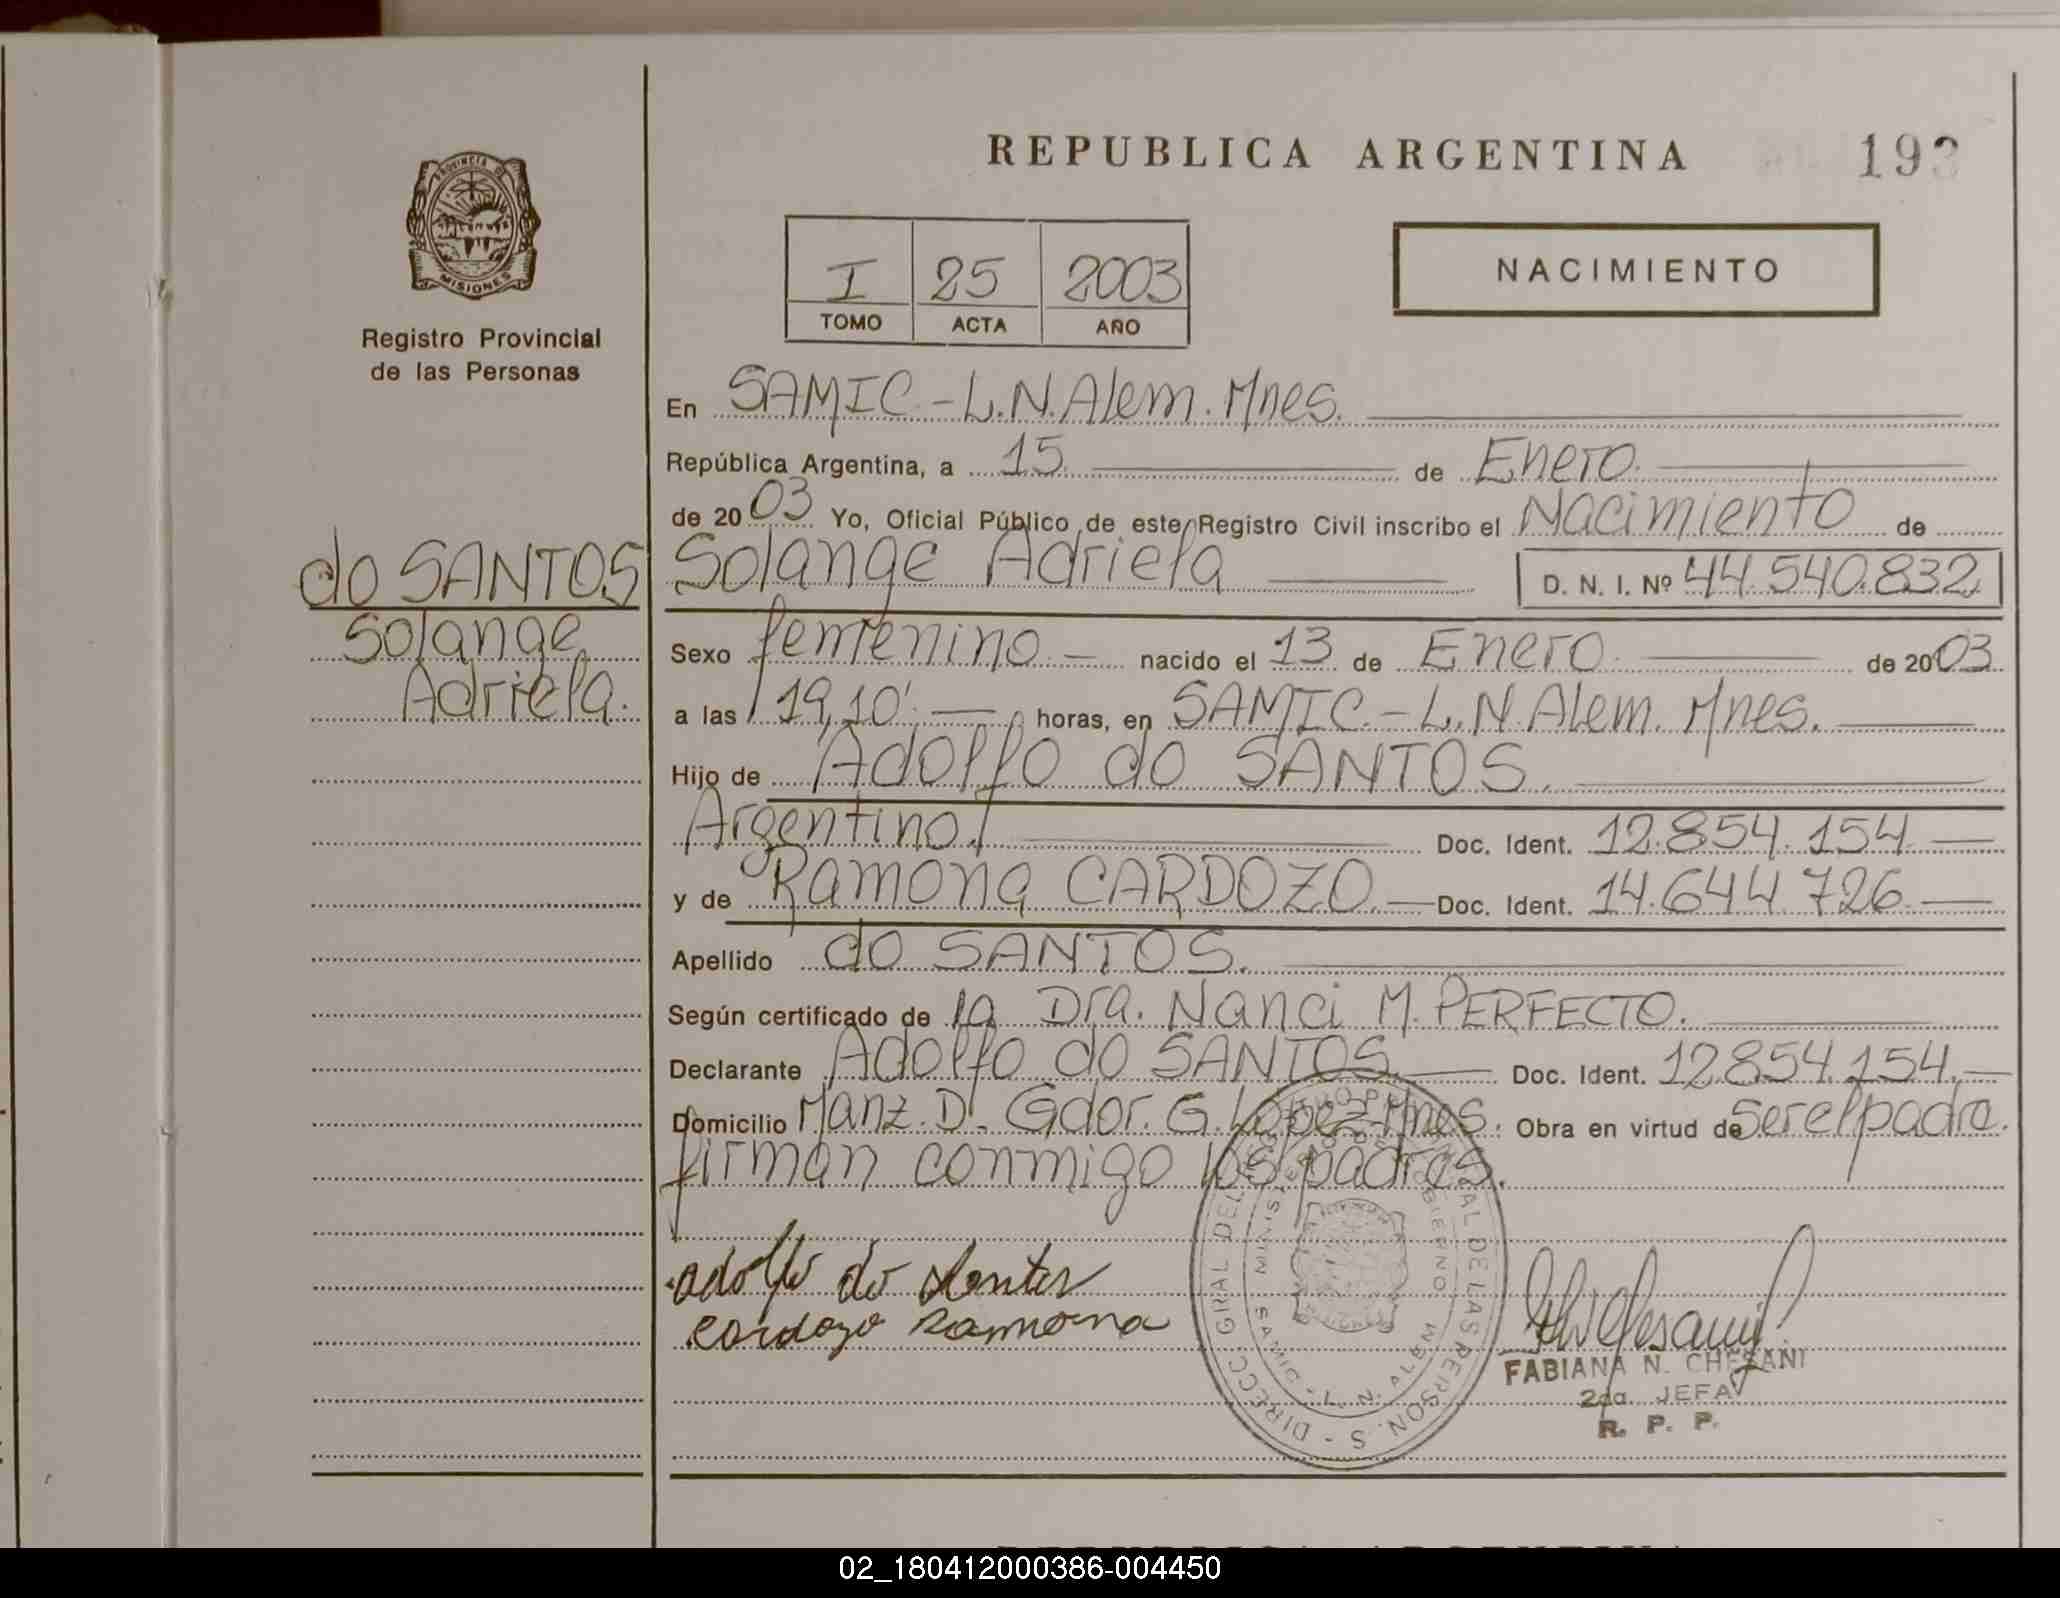 REPUBLICA ARGENTINA
193
PROVINCIA DE
MISIONES
Registro Provincial
de las Personas
I 25 2003
TOMO ACTA AÑO
NACIMIENTO
En SAMIC.-L.N.Alem.Mnes.
República Argentina, a 15 de Enero.
de 2003 Yo, Oficial Público de este Registro Civil inscribo el Nacimiento de
do SANTOS
Solange
Adriela.
Solange Adriela D. N. I. Nº 44.540.832
Sexo femenino. nacido el 13 de Enero de 2003
a las 19,10' horas, en SAMIC.-L.N.Alem. Mnes.
Hijo de Adolfo do SANTOS.
Argentino. Doc. Ident. 12.854.154
y de Ramona CARDOZO. Doc. Ident. 14.644.726
Apellido do SANTOS.
Según certificado de la Dra. Nanci M. PERFECTO.
Declarante Adolfo do SANTOS. Doc. Ident. 12.854.154.
Domicilio Manz. D. Gdor. G. Lopez. Mnes. Obra en virtud de ser el padre.
firman conmigo los padres.
adolfo do santos
cardozo Ramona
DIRECC. GRAL DEL DE LAS PERSON. S
MINISTERIO DE GOBIERNO
SAMIC - L. N. ALEM
FABIANA N. CHESANI
2da. JEFA
R. P. P.
02_180412000386-004450